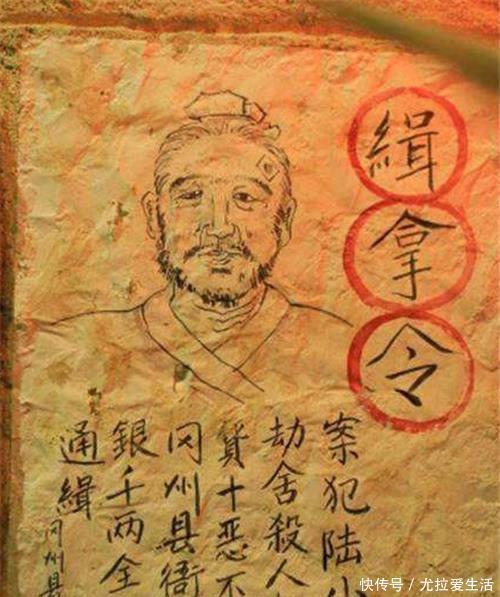 緝拿令
案犯陆
劫舍殺人
貨十恶不
冈州县衙
銀千两全
通緝
冈州县
快传号/尤拉爱生活